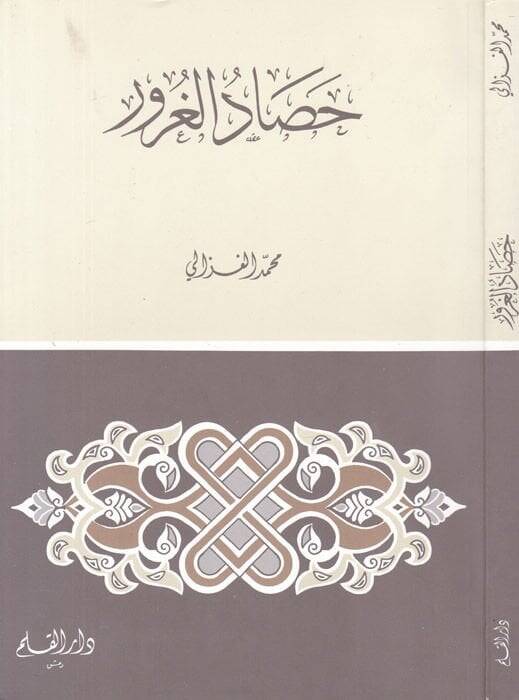 حَصَادُ الغُرُور
محمّد الغزالي
دار القلم
دمشق
محمّد الغزالي
حصاد الغرور
دار القلم